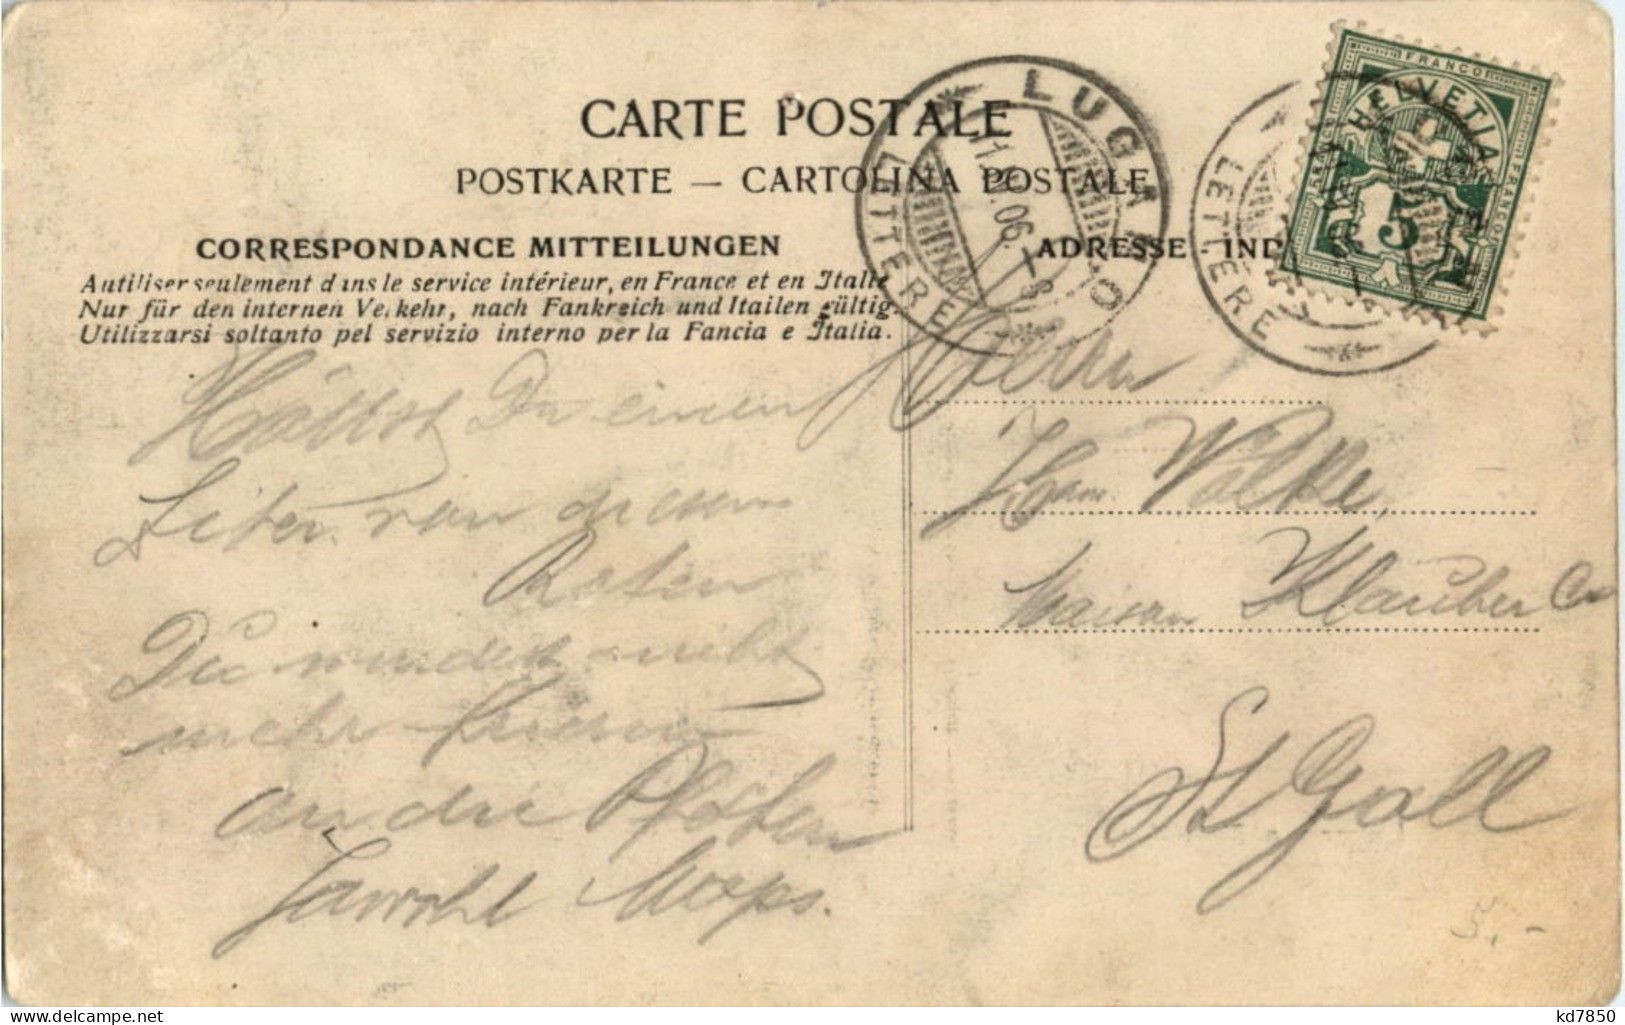 CARTE POSTALE
POSTKARTE — CARTOLINA POSTALE
CORRESPONDANCE MITTEILUNGEN
ADRESSE IND
Autiliser seulement dans le service intérieur, en France et en Italie
Nur für den internen Verkehr, nach Fankreich und Itailen gültig.
Utilizzarsi soltanto pel servizio interno per la Fancia e Italia.
LUGANO
LETTERE
LETTERE
FRANCO
HELVETIA
5
Hättest Du einen
Liter von diesem
Roten
Du würdest nicht
mehr
an die
Jawohl Mops.
Herrn
Maison Klauber
St Gall
5.-
kd7850